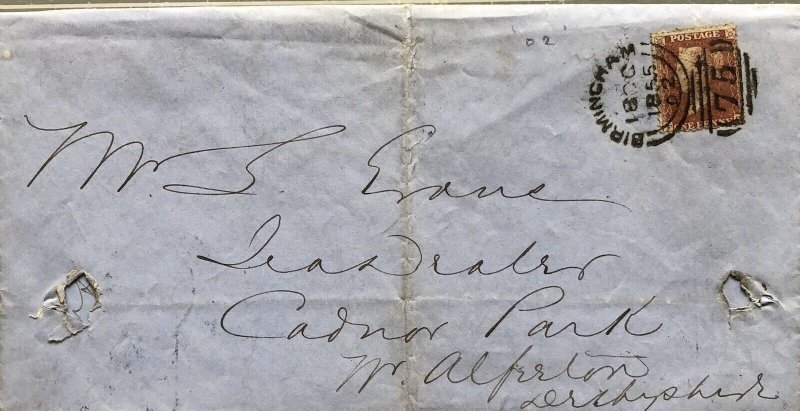 02
POSTAGE
BIRMINGHAM
18 OC
1855
75
ONE PENNY
Mr S. Evans
Tea Dealer
Codnor Park
Nr. Alfreton
Derbyshire